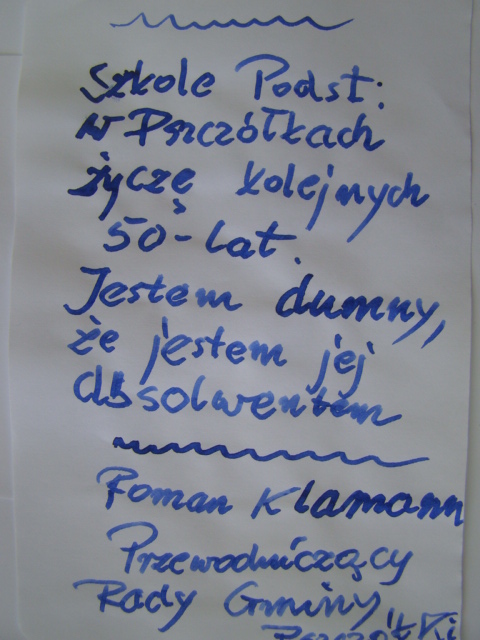 Szkole Podst:
w Pszczółkach
życzę kolejnych
50-lat.
Jestem dumny,
że jestem jej
absolwentem
Roman Klamann
Przewodniczący
Rady Gminy
Pszczółki